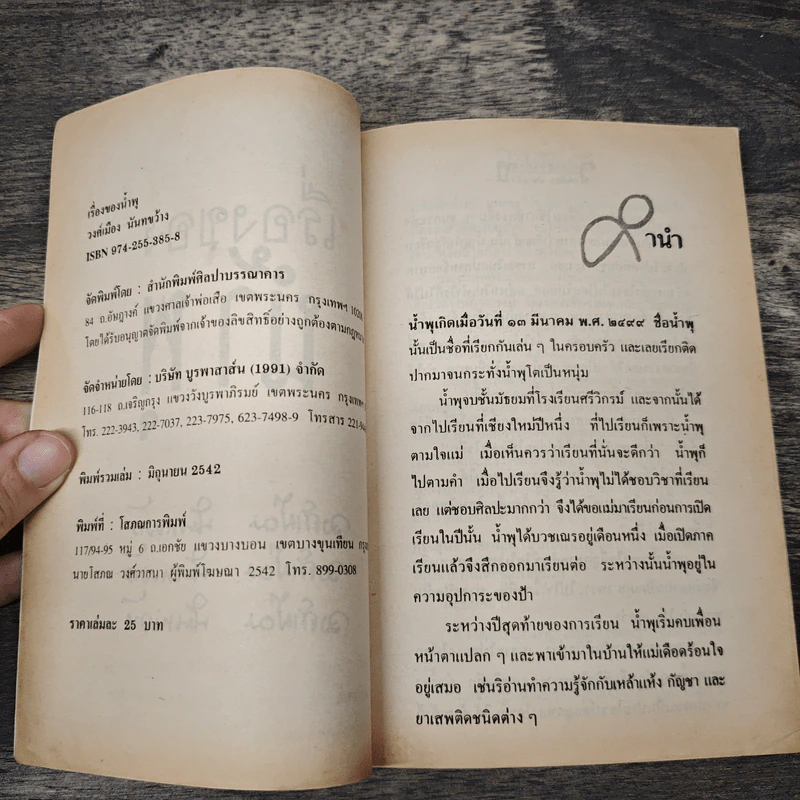 เรื่องของน้ำพุ
วงศ์เมือง นันทขว้าง
ISBN 974-255-385-8
จัดพิมพ์โดย : สำนักพิมพ์ศิลปาบรรณาคาร
84 ถ.อัษฎางค์ แขวงศาลเจ้าพ่อเสือ เขตพระนคร กรุงเทพฯ 10200
โดยได้รับอนุญาตจัดพิมพ์จากเจ้าของลิขสิทธิ์อย่างถูกต้องตามกฎหมาย
จัดจำหน่ายโดย : บริษัท บูรพาสาส์น (1991) จำกัด
116-118 ถ.เจริญกรุง แขวงวังบูรพาภิรมย์ เขตพระนคร
โทร. 222-3943, 222-7037, 223-7975, 623-7498-9 โทรสาร
พิมพ์รวมเล่ม : มิถุนายน 2542
พิมพ์ที่ : โสภณการพิมพ์
117/94-95 หมู่ 6 ถ.เอกชัย แขวงบางบอน เขตบางขุนเทียน
นายโสภณ วงศ์วาสนา ผู้พิมพ์โฆษณา 2542 โทร. 899-0308
ราคาเล่มละ 25 บาท
คำนำ
น้ำพุเกิดเมื่อวันที่ ๑๓ มีนาคม พ.ศ. ๒๔๙๙ ชื่อน้ำพุ
นั้นเป็นชื่อที่เรียกกันเล่น ๆ ในครอบครัว และเลยเรียกติด
ปากมาจนกระทั่งน้ำพุโตเป็นหนุ่ม
น้ำพุจบชั้นมัธยมที่โรงเรียนศรีวิกรม์ และจากนั้นได้
จากไปเรียนที่เชียงใหม่ปีหนึ่ง ที่ไปเรียนก็เพราะน้ำพุ
ตามใจแม่ เมื่อเห็นควรว่าเรียนที่นั่นจะดีกว่า น้ำพุก็
ไปตามคำ เมื่อไปเรียนจึงรู้ว่าน้ำพุไม่ได้ชอบวิชาที่เรียน
เลย แต่ชอบศิลปะมากกว่า จึงได้ขอแม่มาเรียนก่อนการเปิด
เรียนในปีนั้น น้ำพุได้บวชเณรอยู่เดือนหนึ่ง เมื่อเปิดภาค
เรียนแล้วจึงสึกออกมาเรียนต่อ ระหว่างนั้นน้ำพุอยู่ใน
ความอุปการะของป้า
ระหว่างปีสุดท้ายของการเรียน น้ำพุเริ่มคบเพื่อน
หน้าตาแปลก ๆ และพาเข้ามาในบ้านให้แม่เดือดร้อนใจ
อยู่เสมอ เช่นริอ่านทำความรู้จักกับเหล้าแห้ง กัญชา และ
ยาเสพติดชนิดต่าง ๆ